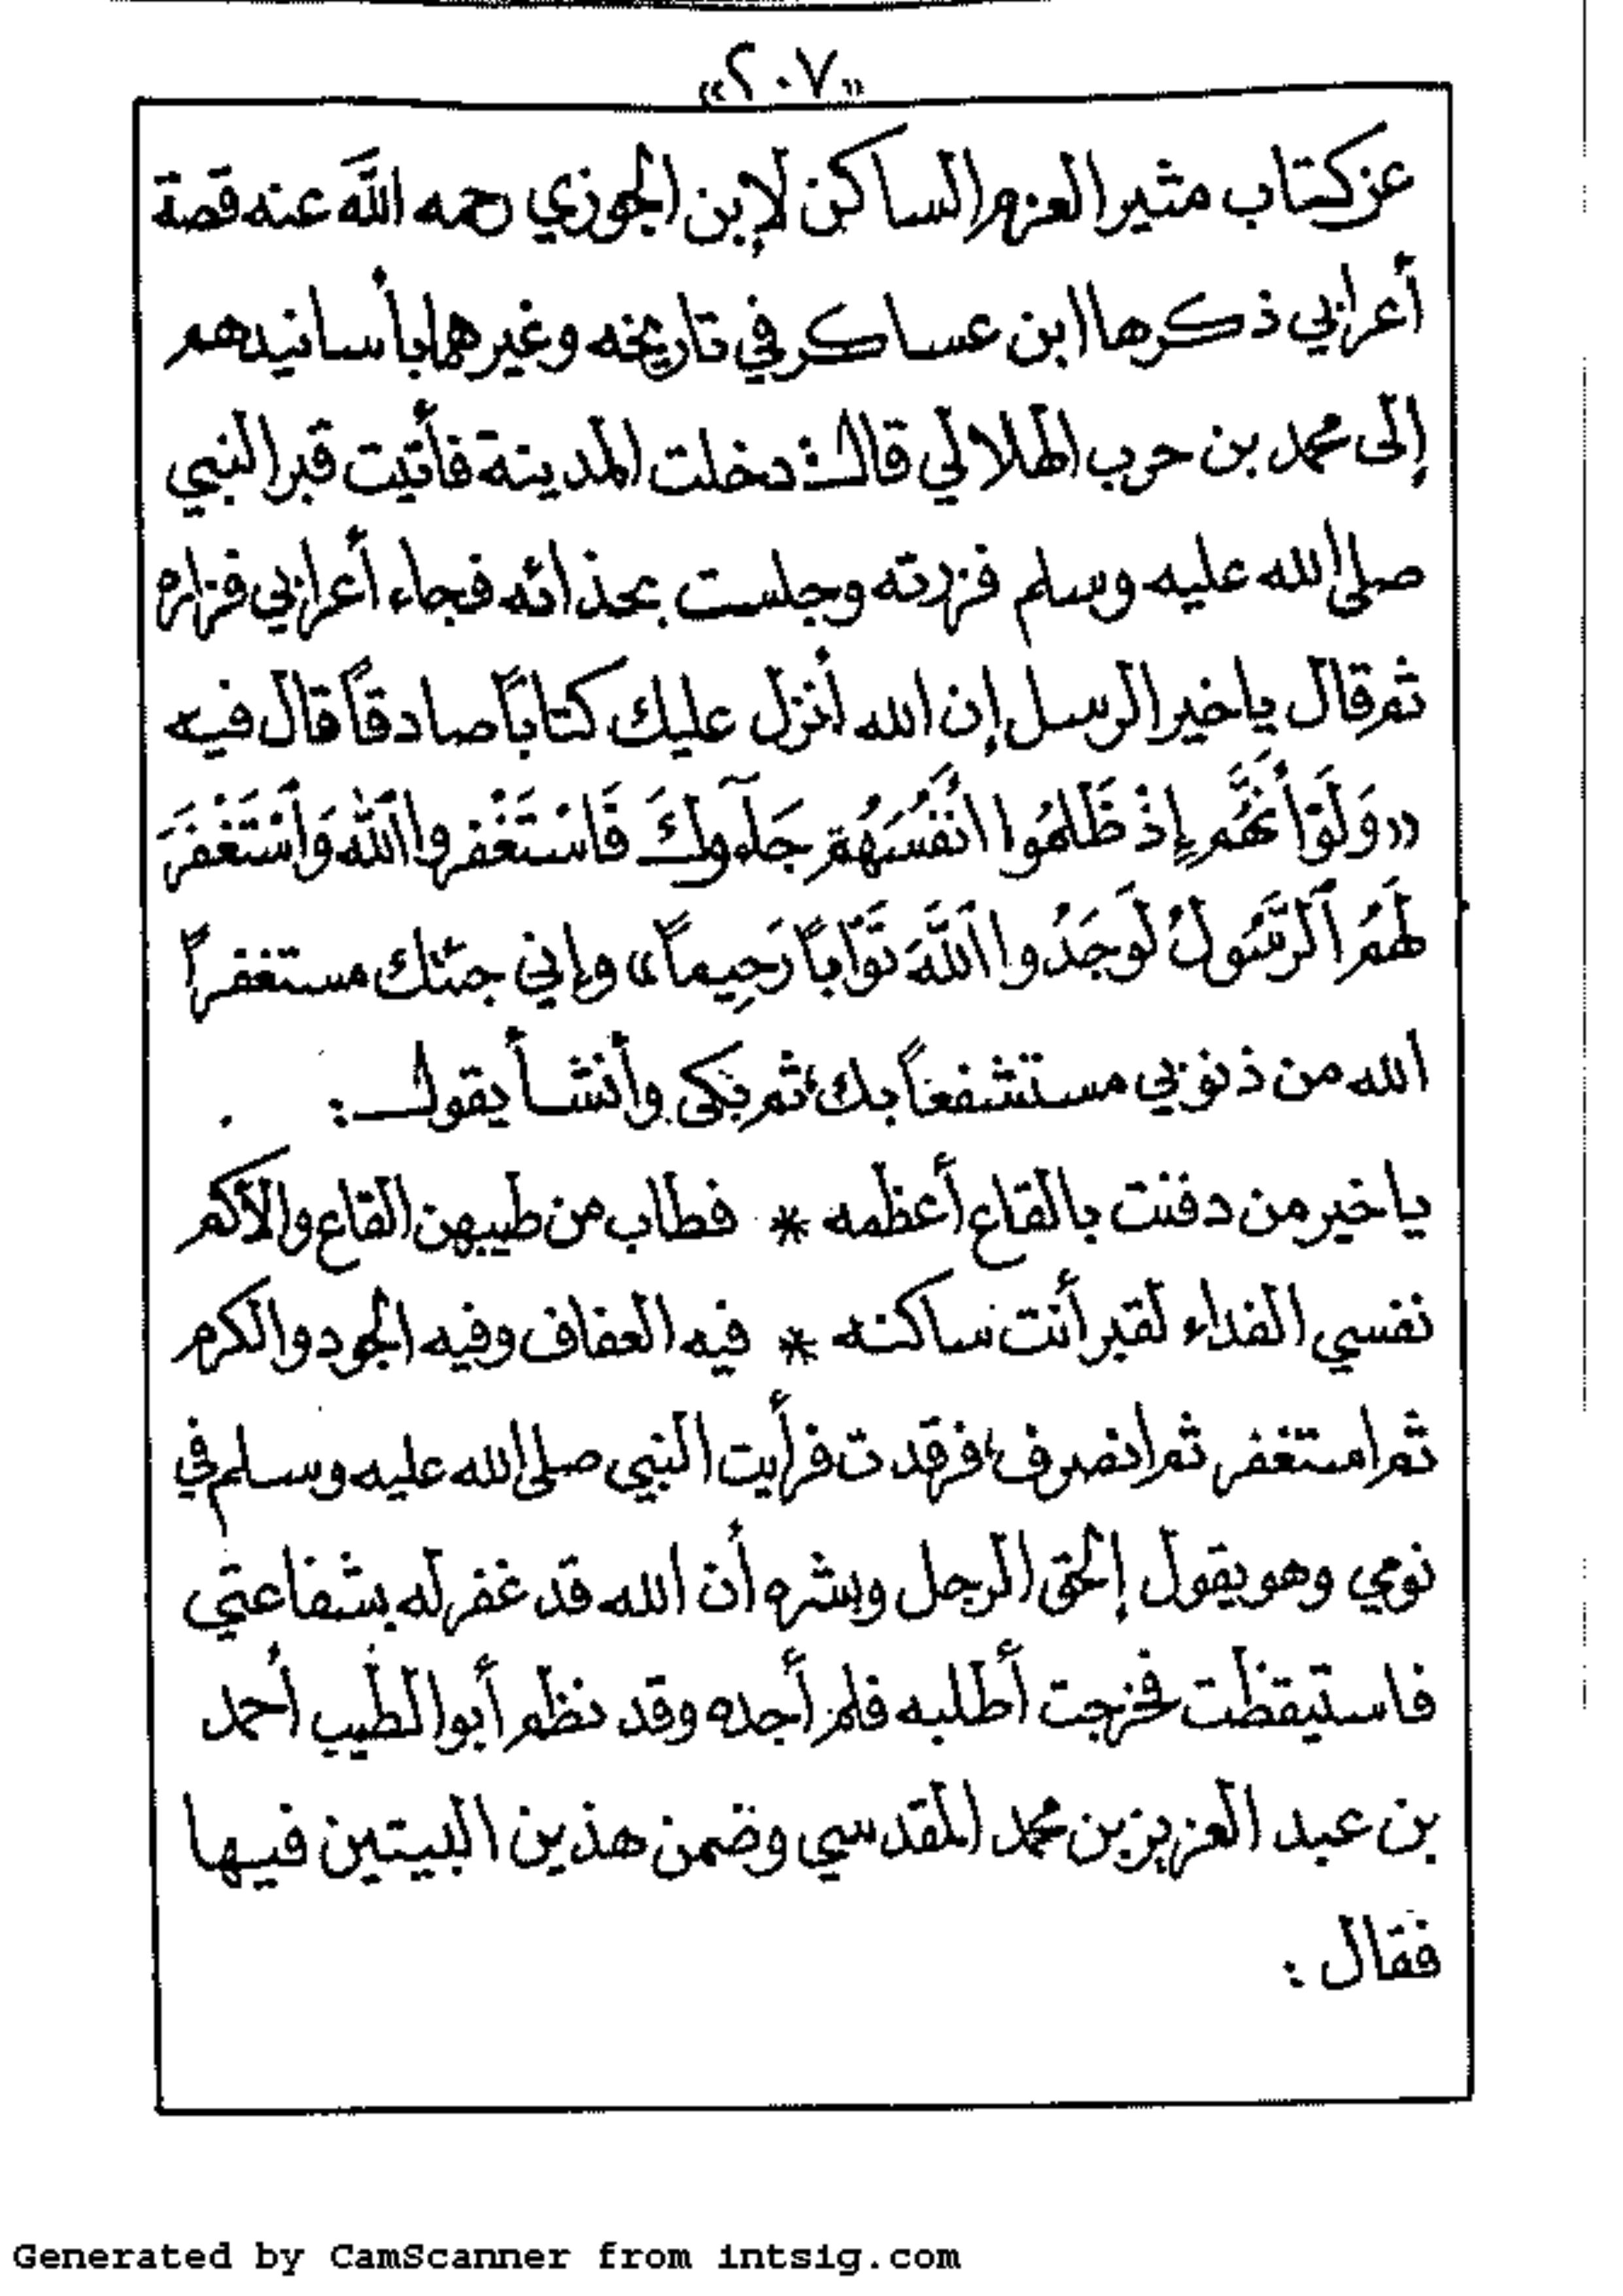 «٢٠٧»
عن كتاب مثير العزم الساكن لإبن الجوزي رحمه اللَّه عنه قصة
أعرابي ذكرها ابن عساكر في تاريخه وغيرهما بأسانيدهم
إلى محمد بن حرب الهلالي قال: دخلت المدينة فأتيت قبر النبي
صلى الله عليه وسلم فزرته وجلست بحذائه فجاء أعرابي فزاره
ثم قال يا خير الرسل إن الله أنزل عليك كتاباً صادقاً قال فيه
«وَلَوْ أَنَّهُمْ إِذْ ظَلَمُوا أَنْفُسَهُمْ جَآءُوكَ فَاسْتَغْفَرُوا اللَّهَ وَاسْتَغْفَرَ
لَهُمُ الرَّسُولُ لَوَجَدُوا اللَّهَ تَوَّاباً رَحِيماً» وإني جئتك مستغفراً
الله من ذنوبي مستشفعاً بك، ثم بكى وأنشأ يقول:
يا خير من دفنت بالقاع أعظمه * فطاب من طيبهن القاع والأكم
نفسي الفداء لقبر أنت ساكنه * فيه العفاف وفيه الجود والكرم
ثم استغفر ثم انصرف، فرقدت فرأيت النبي صلى الله عليه وسلم في
نومي وهو يقول إلحق الرجل وبشره أن الله قد غفر له بشفاعتي
فاستيقظت فخرجت أطلبه فلم أجده وقد نظم أبو الطيب أحمد
بن عبد العزيز بن محمد المقدسي وضمن هذين البيتين فيها
فقال:
Generated by CamScanner from intsig.com